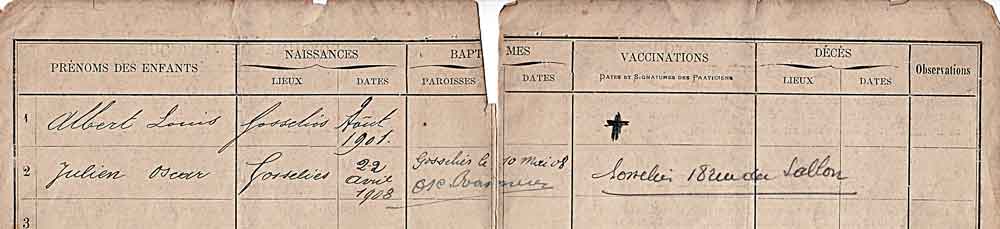 PRÉNOMS DES ENFANTS
NAISSANCES
LIEUX
DATES
BAPTÊMES
PAROISSES
DATES
VACCINATIONS
DATES ET SIGNATURES DES PRATICIENS
DÉCÈS
LIEUX
DATES
Observations
1
Albert Louis
Gosselies
Août
1901.
2
Julien Oscar
Gosselies
22
avril
1908
Gosselies le 10 Mai 08
Gosselies 18 rue du
3